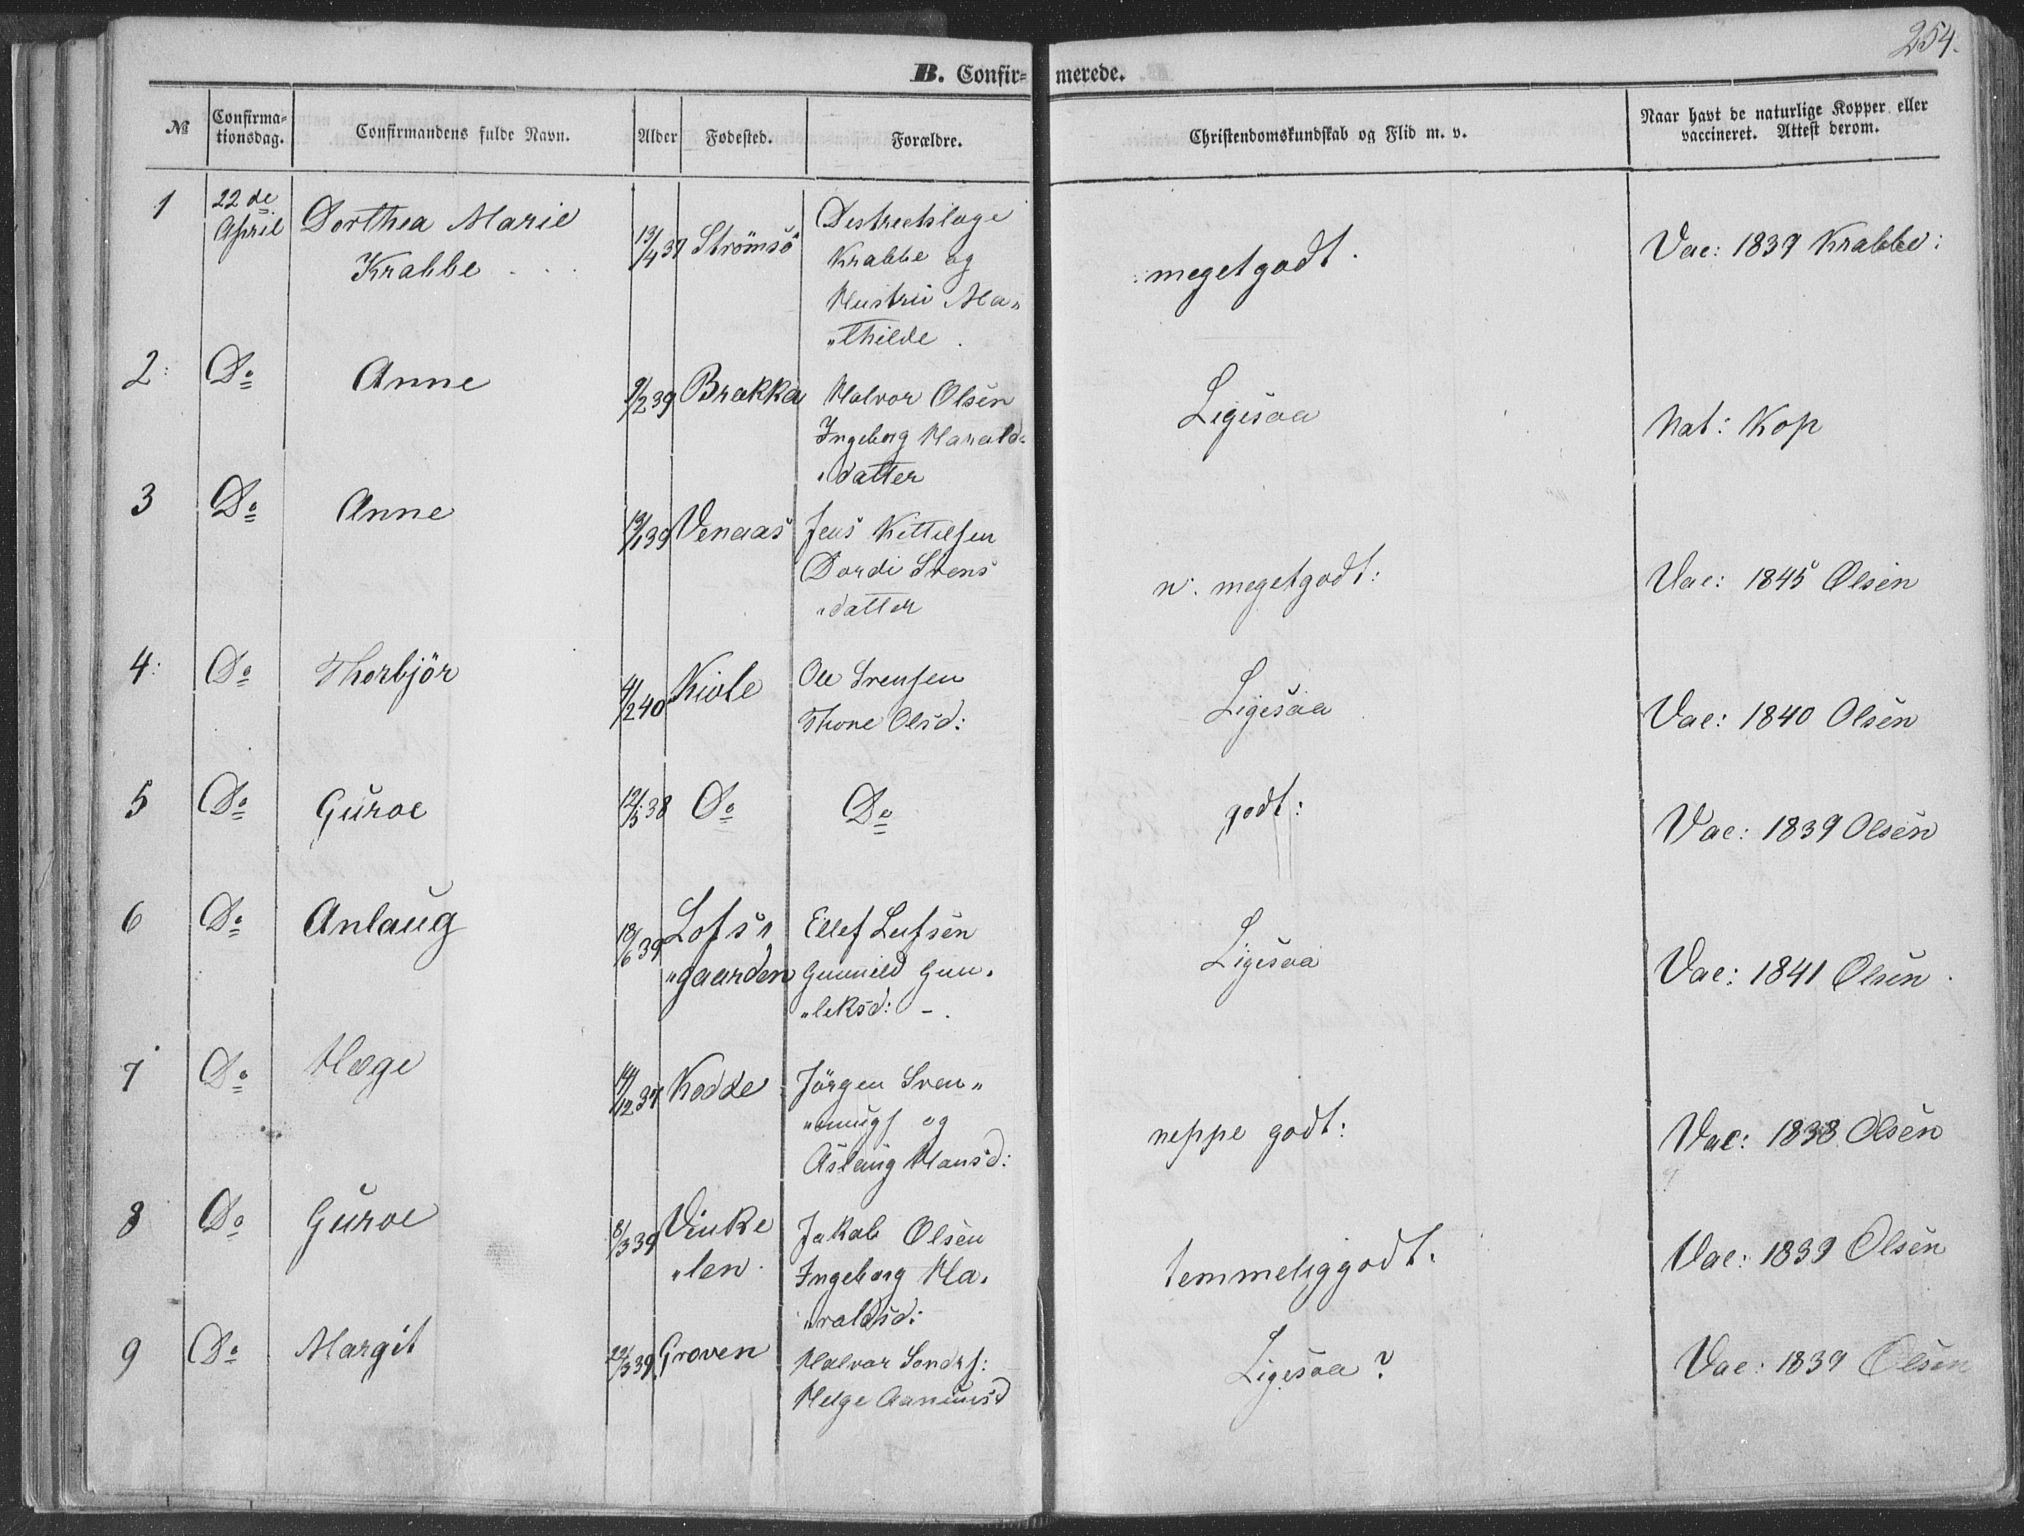 254.
B. Confirmerede.
№ Confirmationsdag. Confirmandens fulde Navn. Alder Fødested. Forældre. Christendomskundskab og Flid m. v. Naar havt de naturlige Kopper eller vaccineret. Attest derom.
1 22de April Dorthea Marie Krabbe 13/4 37 Strömsö Destrectslæge Krabbe og Hustru Ma„ „thilde. meget godt. Vac: 1839 Krabbe:
2: Do Anne 9/2 39 Brakka Halvor Olsen Ingeborg Harald= „datter Ligesaa Nat: Kop
3 Do Anne 19/1 39 Venaas Jens Kittelsen Dordi Svens „datter n. meget godt: Vac: 1845 Olsen
4: Do Thorbjör 4/2 40 Kivle Ole Svensen Thone Olsd: Ligesaa Vac: 1840 Olsen
5 Do Guroe 12/5 38 Do Do godt: Vac: 1839 Olsen
6 Do Anlaug 18/6 39 Lofs„ „gaarden Ellef Leifsen Gunnild Gun„ „leksd: – Ligesaa Vac: 1841 Olsen
7 Do Hæge 14/12 37 Kodde Jörgen Sven„ Aslaug Hansd: neppe godt: Vac: 1838 Olsen
8 Do Guroe 8/3 39 Vinke „len Jakob Olsen Ingeborg Ha„ „raldsd: temmelig godt. Vac: 1839 Olsen
9 Do Margit 22/3 39 Groven Halvor Sondrs: Helge Aanunsd Ligesaa? Vac: 1839 Olsen